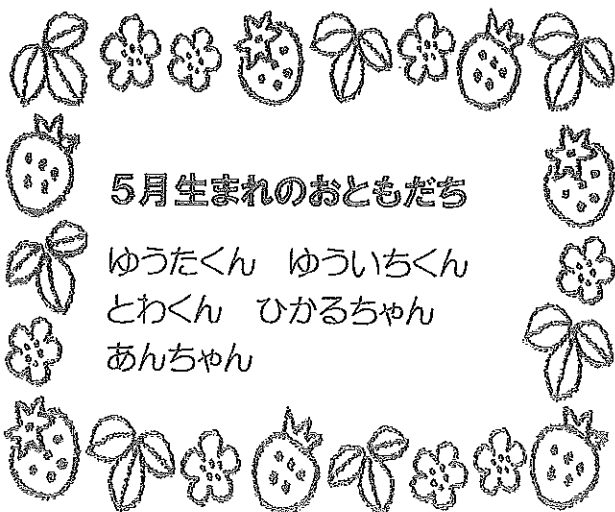 5月生まれのおともだち
ゆうたくん　ゆういちくん
とわくん　ひかるちゃん
あんちゃん